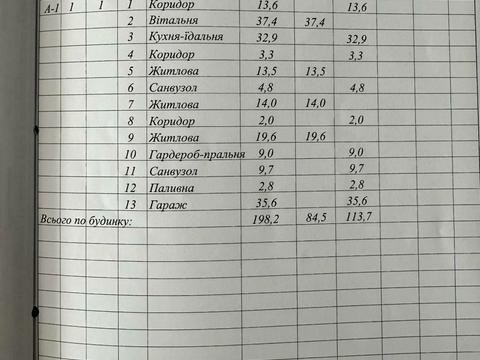 А-1 1 1 1 Коридор 13,6 13,6
2 Вітальня 37,4 37,4
3 Кухня-їдальня 32,9 32,9
4 Коридор 3,3 3,3
5 Житлова 13,5 13,5
6 Санвузол 4,8 4,8
7 Житлова 14,0 14,0
8 Коридор 2,0 2,0
9 Житлова 19,6 19,6
10 Гардероб-пральня 9,0 9,0
11 Санвузол 9,7 9,7
12 Паливна 2,8 2,8
13 Гараж 35,6 35,6
Всього по будинку: 198,2 84,5 113,7